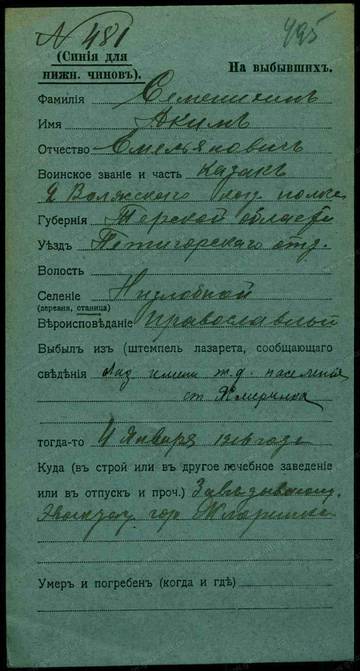 N 481
495
(Синія для
нижн. чиновъ).
На выбывшихъ.
Фамилія Семенихинъ
Имя Акимъ
Отчество Емельяновичъ
Воинское званіе и часть казакъ
2 Волжского каз. полка
Губернія Терской области
Уѣздъ Пятигорскаго отд.
Волость
Селеніе Незлобной
(деревня, станица)
Вѣроисповѣданіе православный
Выбылъ изъ (штемпель лазарета, сообщающаго
свѣдѣнія) Лаз имени ж.д.
ст Жмеринка
тогда-то 4 Января 1916 года
Куда (въ строй или въ другое лечебное заведеніе
или въ отпускъ и проч.) Завѣдывающ.
Эвакуац. гор Жмеринка
Умеръ и погребенъ (когда и гдѣ)